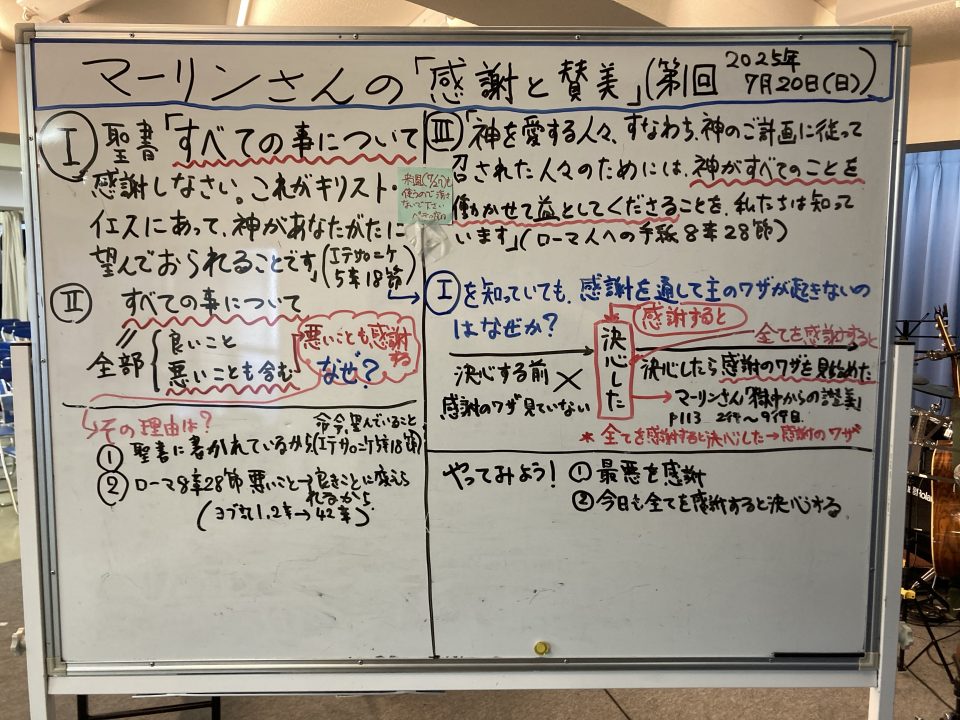 マーリンさんの「感謝と賛美」(第1回 2025年7月20日(日))
Ⅰ 聖書「すべての事について
感謝しなさい。これがキリスト・
イエスにあって、神があなたがたに
望んでおられることです」(Ⅰテサロニケ5章18節)
Ⅱ すべての事について
〃
全部
良いこと
悪いことも含む
悪いことも感謝する
なぜ?
その理由は?
命令、望んでいること
① 聖書に書かれているから(Ⅰテサロニケ5章18節)
② ローマ8章28節 悪いこと→良きことに変えられるから
(ヨブ記1.2章→42章)
来週(7/27)も
使うので消さ
ないで下さい
Ⅲ 「神を愛する人々、すなわち、神のご計画に従って
召された人々のためには、神がすべてのことを
働かせて益としてくださることを、私たちは知って
います」(ローマ人への手紙8章28節)
Ⅰ を知っていても、感謝を通して主のワザが起きないの
はなぜか?
感謝すると
決心した
全てを感謝すると
決心する前
感謝のワザ見ていない
決心したら感謝のワザを見始めた
→マーリンさん「獄中からの讃美」
P113 2行〜9行目
* 全てを感謝すると決心した→感謝のワザ
やってみよう! ① 最悪を感謝
② 今日も全てを感謝すると決心する
Roland